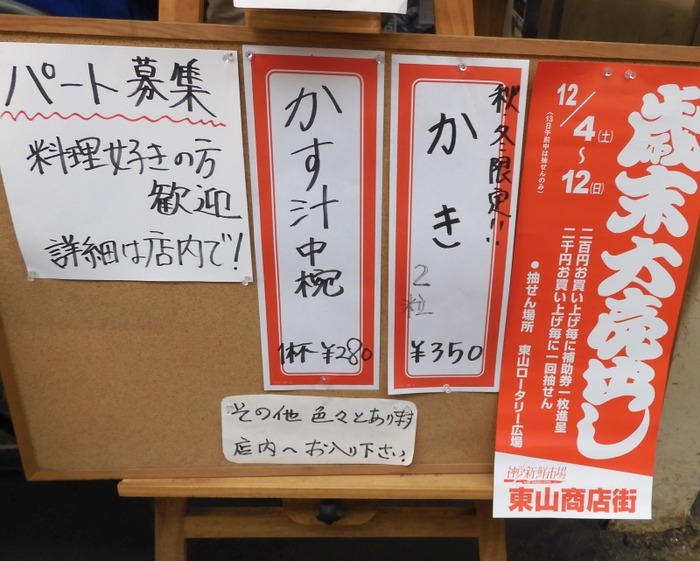 パート募集
料理好きの方
歓迎
詳細は店内で!
かす汁中椀
1杯¥280
秋・冬限定!!
かき
2粒
¥350
その他 色々とあります
店内へお入り下さい。
歳末大売出し
12/4(土)〜12(日)
(13日午前中は抽せんのみ)
二百円お買い上げ毎に補助券一枚進呈
二千円お買い上げ毎に一回抽せん
●抽せん場所 東山ロータリー広場
神戸新鮮市場
東山商店街